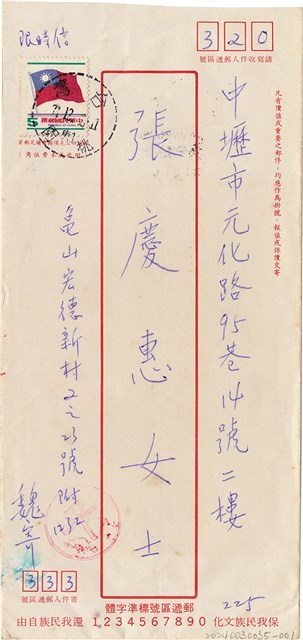 限時信
320
號區遞郵人件收寫填請
中華民國郵票
5
凡有價值或重要之郵件，均應作為掛號、報值或保價交寄
中壢市元化路95巷14號二樓
張慶惠女士
龜山宏德新村
號附1232
魏
333
號區遞郵人件寄
225
體字準標號區遞郵
由自族民我還 1234567890 化文族民我保
20240030035-001